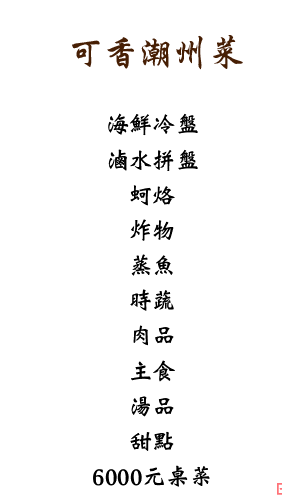 可香潮州菜
海鮮冷盤
滷水拼盤
蚵烙
炸物
蒸魚
時蔬
肉品
主食
湯品
甜點
6000元桌菜